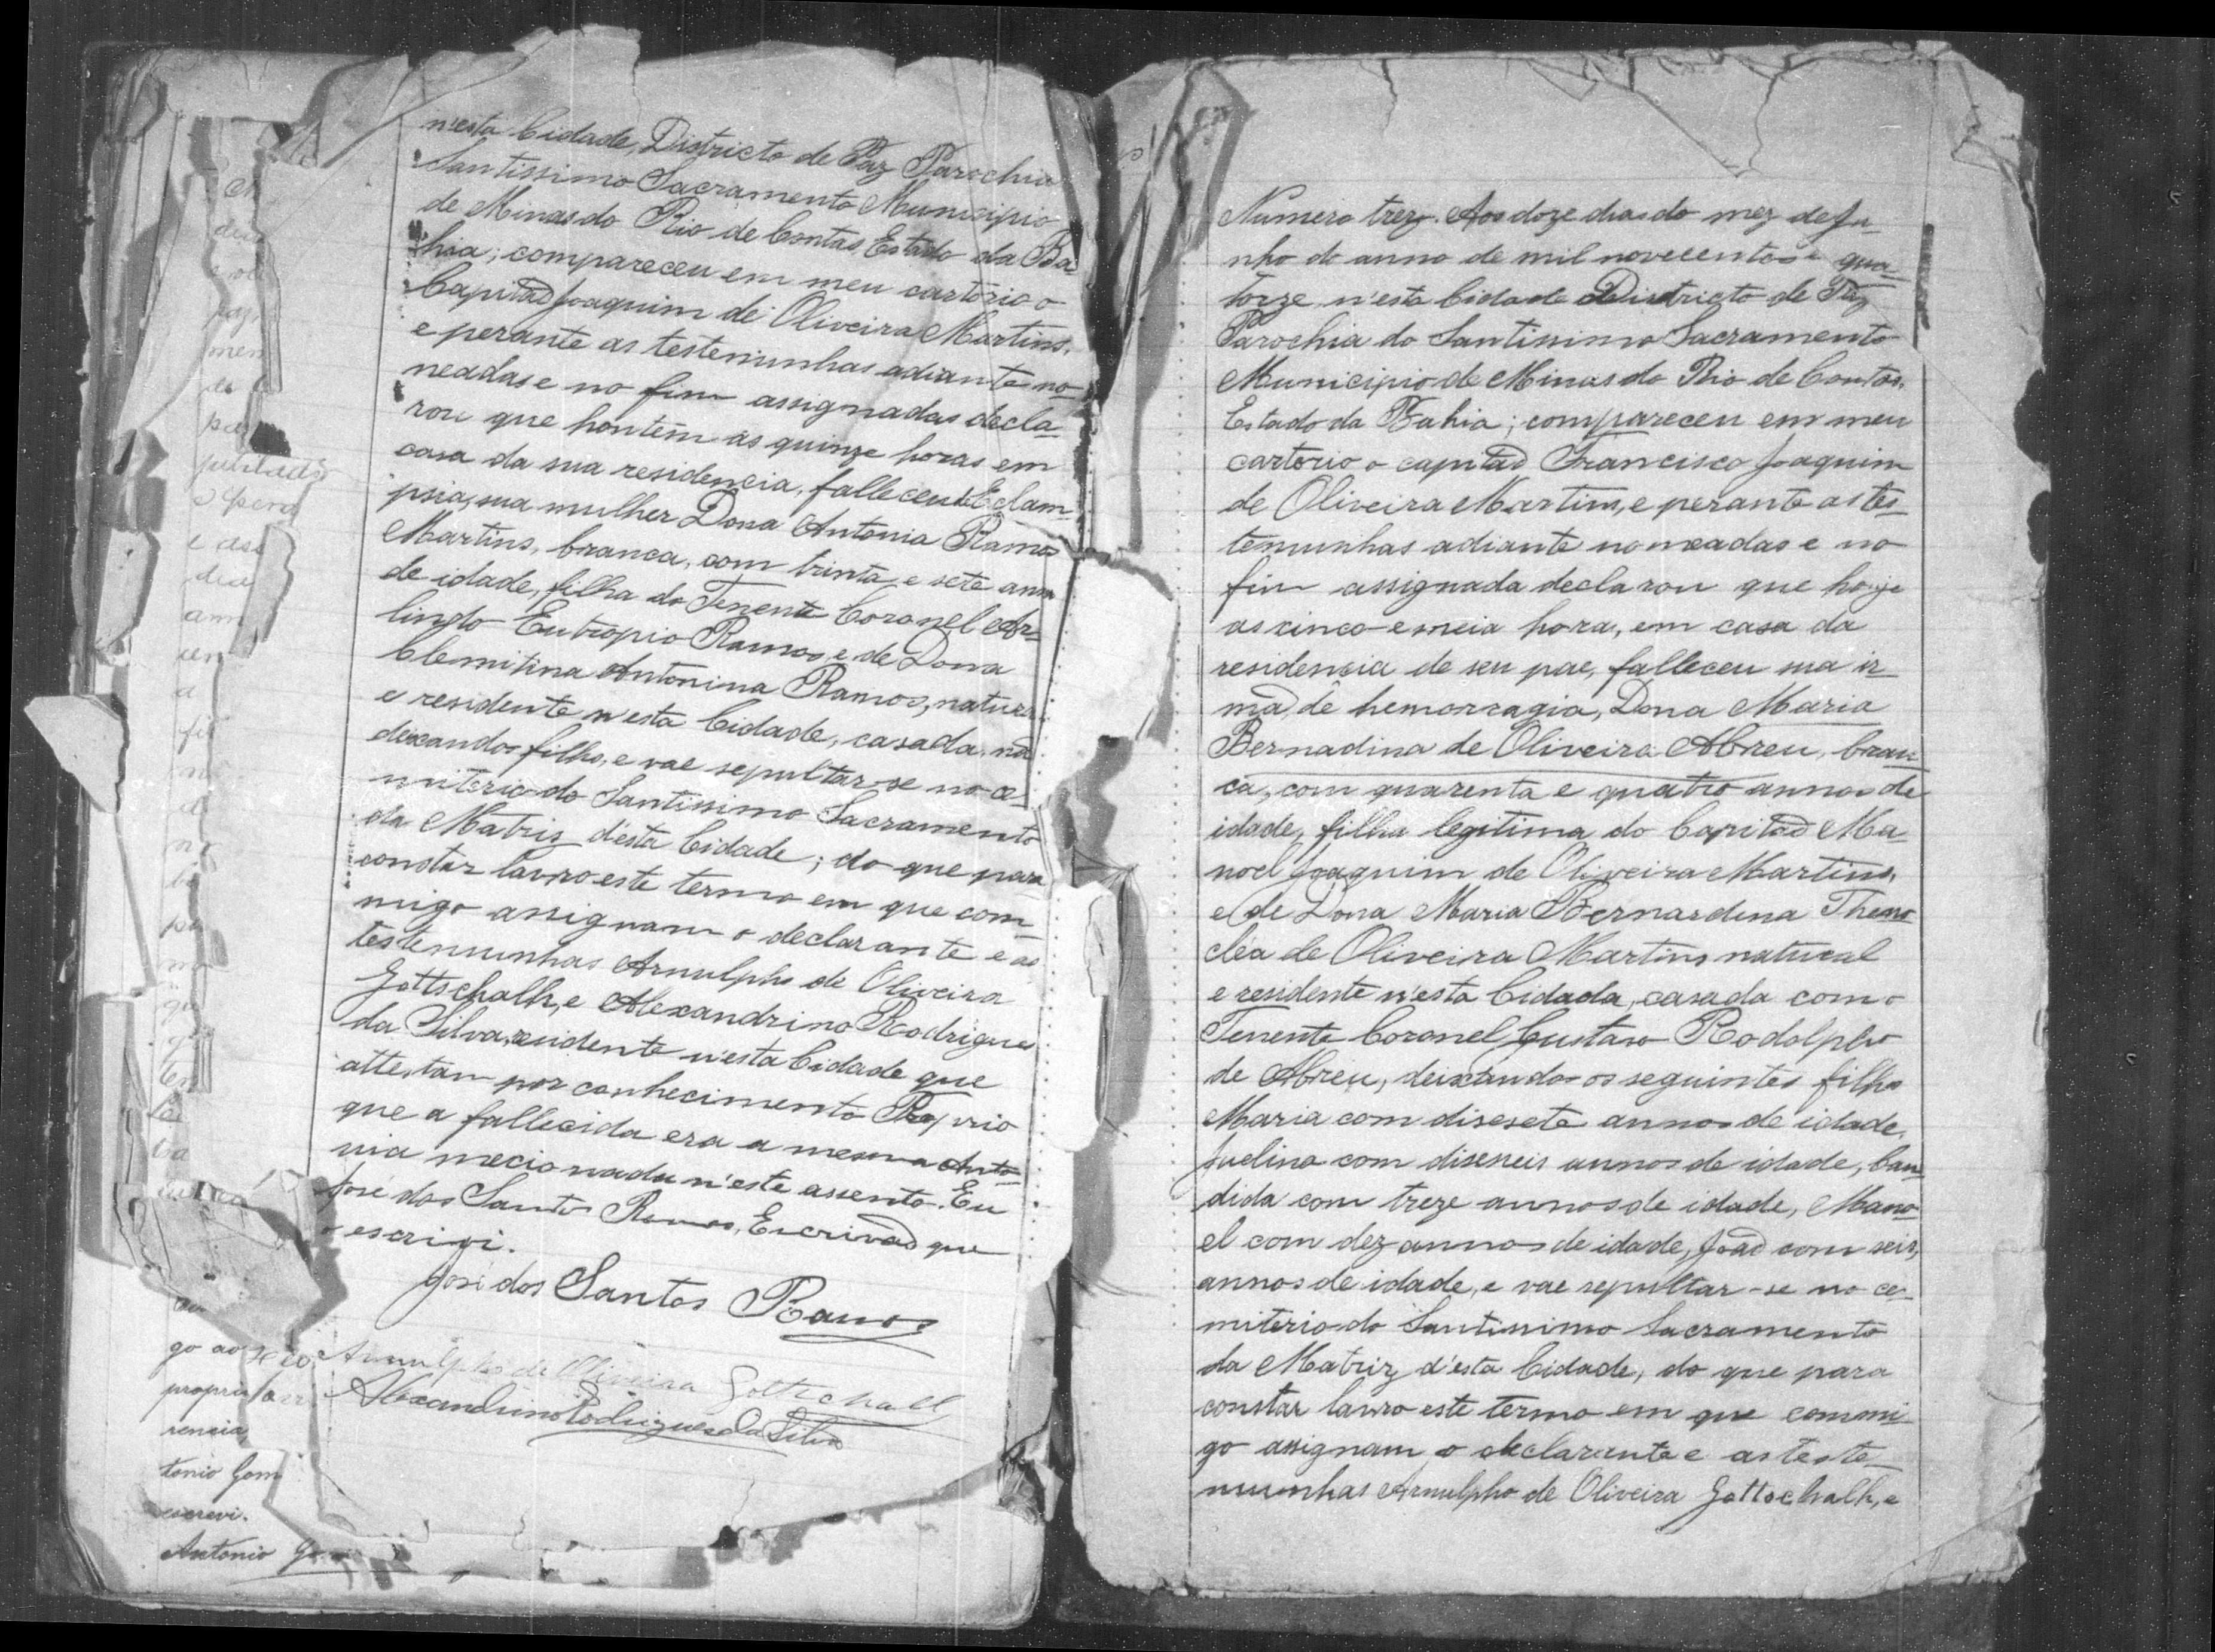 n'esta Cidade, Districto de Paz Parochia
Santissimo Sacramento Municipio
de Minas do Rio de Contas Estado da Ba
hia; compareceu em meu cartorio o
Capitaõ Joaquim de Oliveira Martins,
e perante as testemunhas adiante no-
neadas e no fim assignadas decla-
rou que hontem ás quinze horas em
casa da sua residencia, falleceu de Eclam-
psia, sua mulher Dona Antonia Ramos
Martins, branca, com trinta e sete annos
de idade, filha do Tenente Coronel Ar-
lindo Eutropio Ramos, e de Dona
Clemitina Antonina Ramos, natural
e residente n'esta Cidade, casada, naõ
deixando filho, e vae sepultar-se no ce-
miterio do Santissimo Sacramento
da Matris d'esta Cidade; do que para
constar lavro este termo em que com-
migo assignam o declarante e as
testemunhas Arnulpho de Oliveira
Gottschalh, e Alexandrino Rodrigues
da Silva, residente n'esta Cidade que
attestam por conhecimento Proprio
que a fallecida era a mesma Anto-
nia mecionada n'este assento. Eu
José dos Santos Ramos, Escrivaõ que
o escrivi.
José dos Santos Ramos
Arnulpho de Oliveira Gottschall
Alexandrino Rodrigues da Silva
go ao
propri
rencia
tonio Gom
escrevi.
Antonio
Numero treze. Aos doze dias do mez de Ju-
nho do anno de mil novecentos e qua-
torze n'esta Cidade Districto de Paz
Parochia do Santissimo Sacramento
Municipio de Minas do Rio de Contas,
Estado da Bahia; compareceu em meu
cartorio o capitaõ Francisco Joaquim
de Oliveira Martins, e perante as tes-
temunhas adiante nomeadas e no
fim assignada declarou que hoje
as cinco e meia hora, em casa da
residencia de seu pae, falleceu sua ir-
maã, de hemorragia, Dona Maria
Bernadina de Oliveira Abreu, bran-
ca, com quarenta e quatro annos de
idade, filha legitima do Capitaõ Ma-
noel Joaquim de Oliveira Martins,
e de Dona Maria Bernardina Themo-
cléa de Oliveira Martins natural
e residente n'esta Cidada, casada com o
Tenente Coronel Gustavo Rodolpho
de Abreu, deixando os seguintes filhos
Maria com disesete annos de idade,
Juelina com diseseis annos de idade, Can-
dida com treze annos de idade, Mano-
el com dez annos de idade, Joaõ com seis,
annos de idade, e vae sepultar-se no ce-
miterio do Santissimo Sacramento
da Matriz d'esta Cidade, do que para
constar lavro este termo em que commi-
go assignam o declarante e as teste-
munhas Arnulpho de Oliveira Gottschalh, e